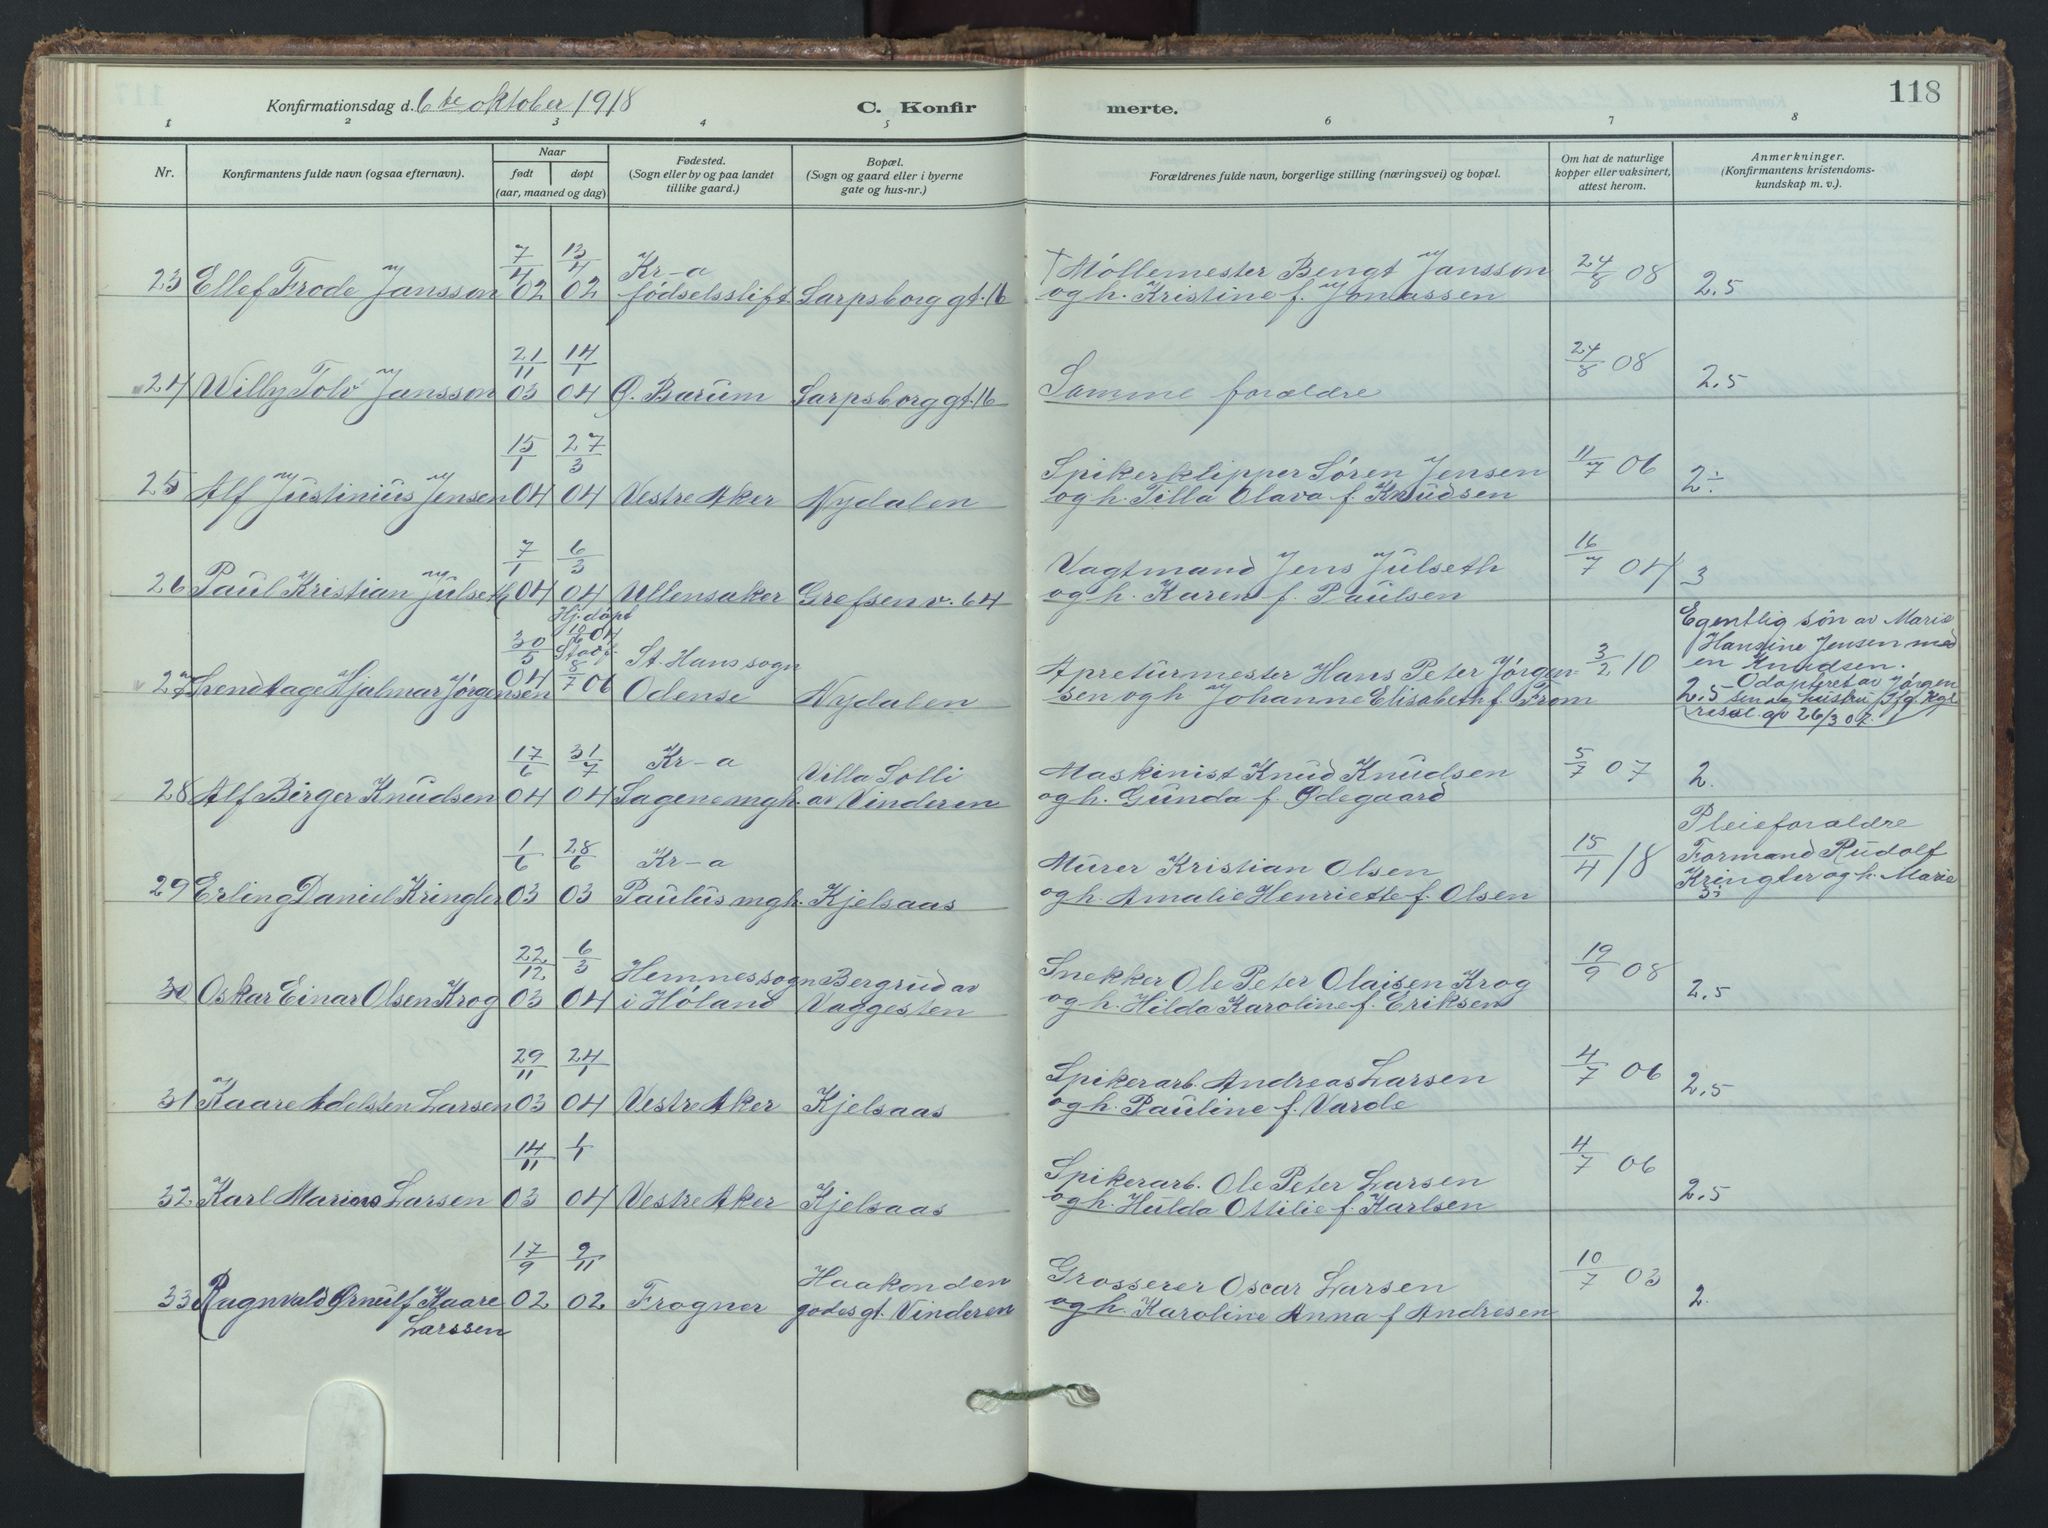 Konfirmationsdag d. 6te oktober 1918
C. Konfirmerte.
118
1 2 3 4 5 6 7 8
Nr.
Konfirmantens fulde navn (ogsaa efternavn).
Naar
født døpt
(aar, maaned og dag)
Fødested.
(Sogn eller by og paa landet
tillike gaard.)
Bopæl.
(Sogn og gaard eller i byerne
gate og hus-nr.)
Forældrenes fulde navn, borgerlige stilling (næringsvei) og bopæl.
Om hat de naturlige
kopper eller vaksinert,
attest herom.
Anmerkninger.
(Konfirmantens kristendoms-
kundskap m. v.).
23 Ellef Frode Jansson 7/4 02 13/4 02
Kr-a
fødselsstift
Sarpsborg gt. 16
† Møllemester Bengt Jansson
og h. Kristine f. Jonassen
24/8 08
2,5
24 Willy Tolv Jansson 21/11 03 14/1 04
Ø. Bærum
Sarpsborg gt. 16
Samme forældre
24/8 08
2,5
25 Alf Justinius Jensen 15/1 04 27/3 04
Vestre Aker
Nydalen
Spikerklipper Søren Jensen
og h. Tilla Olava f. Knudsen
11/7 06
2÷
26 Paul Kristian Julseth 7/1 04 6/3 04
Ullensaker
Grefsen v. 64
Vagtmand Jens Julseth
og h. Karen f. Paulsen
16/7 04
3
27 Svend Aage Hjalmar Jørgensen 30/5 04
Hj. døpt
10/6 04
Stadf.
8/7 06
St. Hans sogn
Odense
Nydalen
Apreturmester Hans Peter Jørgen-
sen og h. Johanne Elisabeth f. From
3/2 10
Egentlig søn av Marie
Hansine Jensen med
en Knudsen.
Adopteret av Jørgen
2,5 sen og hustru Ifg. Kgl.
resol. av 26/3 07.
28 Alf Birger Knudsen 17/6 04 31/7 04
Kr-a
Sagene mgh.
Villa Solli
av Vinderen
Maskinist Knud Knudsen
og h. Gunda f. Ødegaard
5/7 07
2.
29 Erling Daniel Kringler 1/6 03 28/6 03
Kr-a
Paulus mgh.
Kjelsaas
Murer Kristian Olsen
og h. Amalie Henriette f. Olsen
15/4 18
Pleieforældre
Formand Rudolf
Kringler og h. Marie
3÷
30 Oskar Einar Olsen Krog 22/12 03 6/3 04
Hemnes sogn
i Høland
Bergrud av
Vaggesten
Snekker Ole Peter Olaisen Krog
og h. Hilda Karoline f. Eriksen
19/9 08
2,5
31 Kaare Adelsten Larsen 29/11 03 24/1 04
Vestre Aker
Kjelsaas
Spikerarb. Andreas Larsen
og h. Pauline f. Varde
4/7 06
2,5
32 Karl Marius Larsen 14/11 03 1/1 04
Vestre Aker
Kjelsaas
Spikerarb. Ole Peter Larsen
og h. Hulda Ottilie f. Karlsen
4/7 06
2,5
33 Ragnvald Ørnulf Kaare
Larssen
17/9 02 9/11 02
Frogner
Haakon den
godes gt. Vinderen
Grosserer Oscar Larsen
og h. Karoline Anna f. Andresen
10/7 03
2.